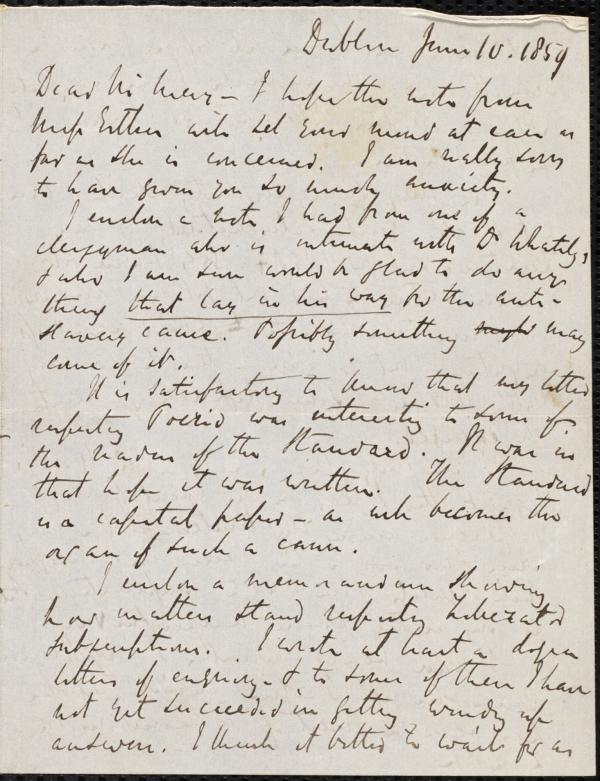 Dublin June 10. 1859
Dear Mr May – I hope the note from
Miss Estlin will set your mind at ease as
far as she is concerned. I am really sorry
to have given you so much anxiety.
I enclose a note I had from one of a
clergyman who is intimate with Dr Whately,
& who I am sure would be glad to do any
thing that lay in his way for the anti-
slavery cause. Possibly something might may
come of it.
It is satisfactory to know that my letter
respecting Poerio was interesting to some of
the readers of the Standard. It was in
that hope it was written. The Standard
is a capital paper – as well becomes the
organ of such a cause.
I enclose a memorandum showing
how matters stand respecting Liberator
subscriptions. I wrote at least a dozen
letters of enquiry – & to some of them I have
not yet succeeded in getting up
answers. I think it better to wait for as